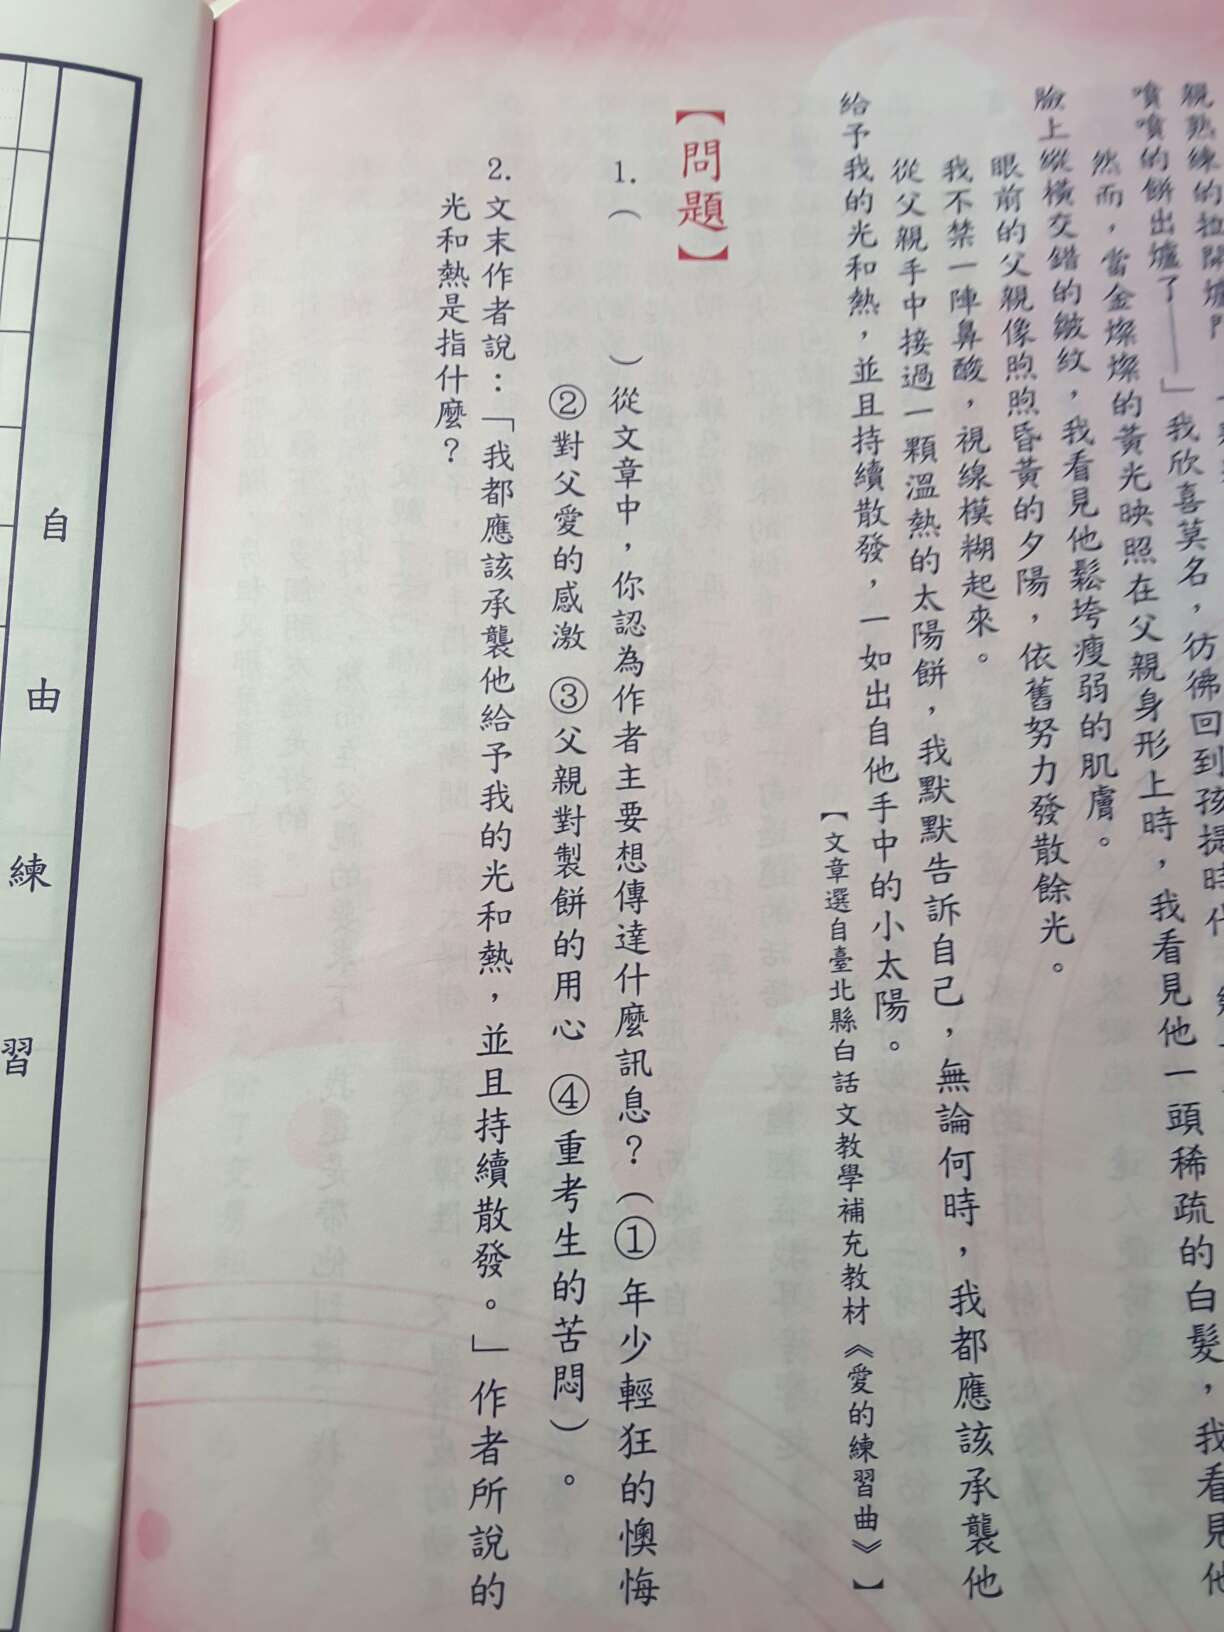 親熟練的拉開爐門
噴噴的餅出爐了——」我欣喜莫名，彷彿回到孩提時代
然而，當金燦燦的黃光映照在父親身形上時，我看見他一頭稀疏的白髮，我看見他
臉上縱橫交錯的皺紋，我看見他鬆垮瘦弱的肌膚。
眼前的父親像煦煦昏黃的夕陽，依舊努力發散餘光。
我不禁一陣鼻酸，視線模糊起來。
從父親手中接過一顆溫熱的太陽餅，我默默告訴自己，無論何時，我都應該承襲他
給予我的光和熱，並且持續散發，一如出自他手中的小太陽。
【文章選自臺北縣白話文教學補充教材《愛的練習曲》】
【問題】
1.（　　）從文章中，你認為作者主要想傳達什麼訊息？（①年少輕狂的懊悔
②對父愛的感激 ③父親對製餅的用心 ④重考生的苦悶）。
2.文末作者說：「我都應該承襲他給予我的光和熱，並且持續散發。」作者所說的
光和熱是指什麼？
自由練習